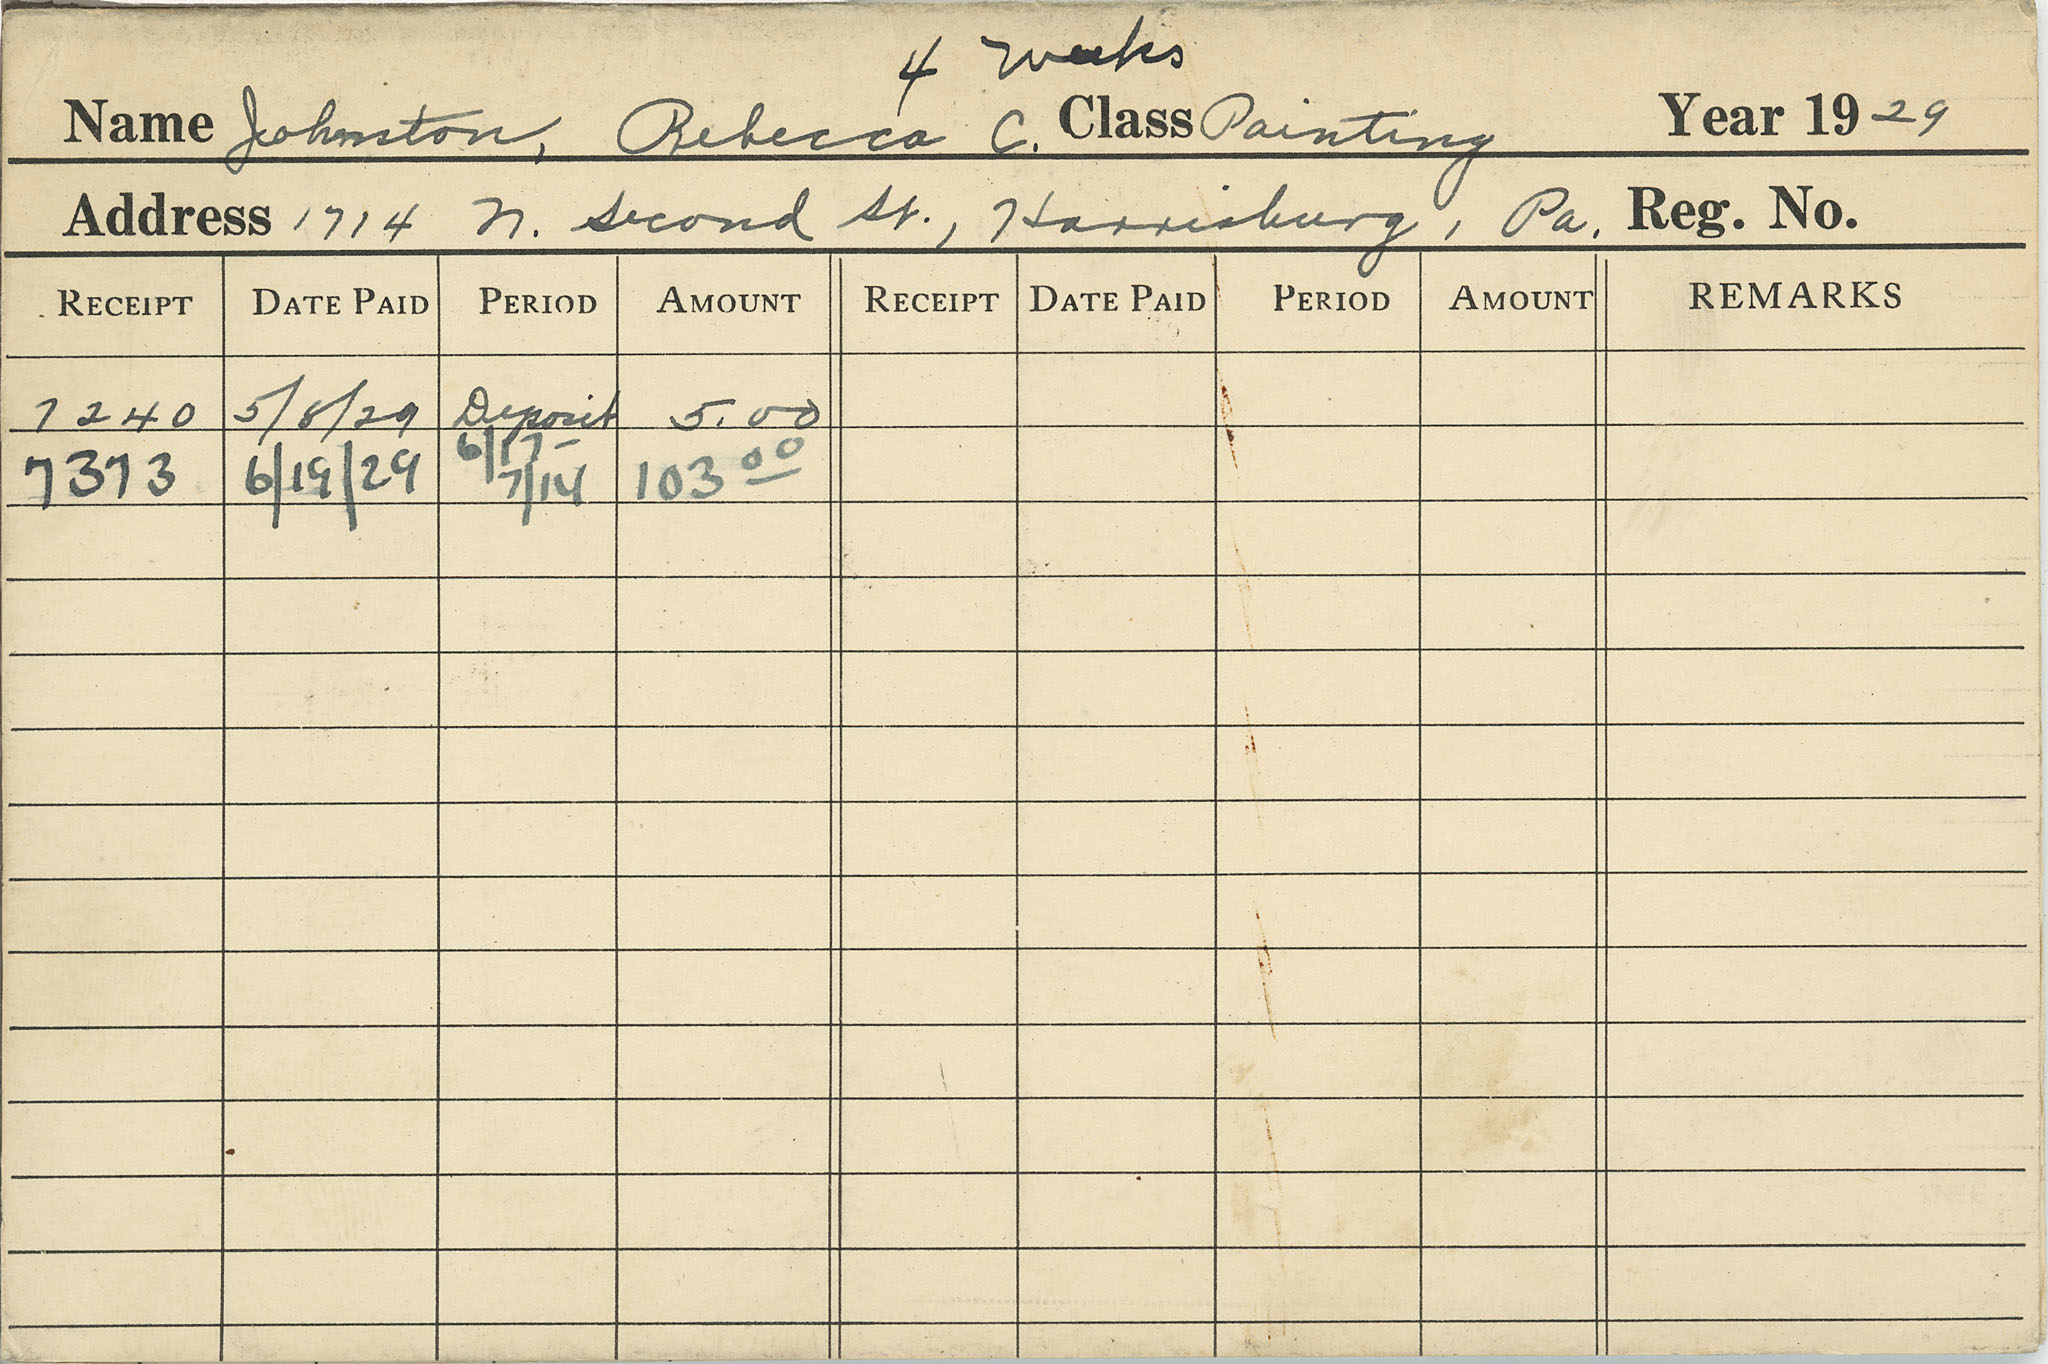 4 weeks
Name Johnston, Rebecca C. Class Painting Year 19 29
Address 1714 N. Second St., Harrisburg, Pa. Reg. No.
RECEIPT DATE PAID PERIOD AMOUNT RECEIPT DATE PAID PERIOD AMOUNT REMARKS
7240 5/8/29 Deposit 5.00
7373 6/19/29 6/17- 7/14 103 00